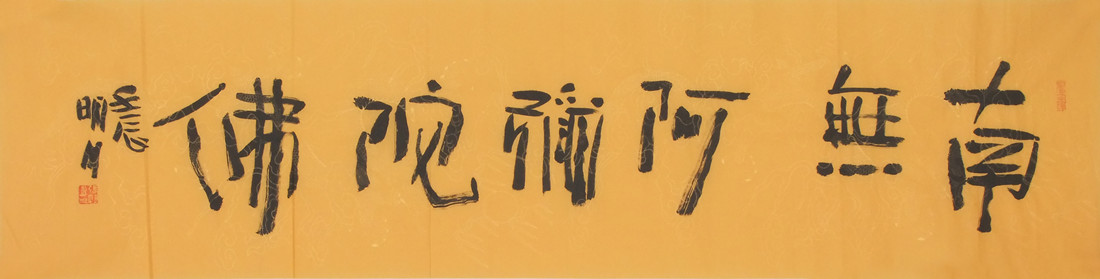 南無阿彌陀佛
明月